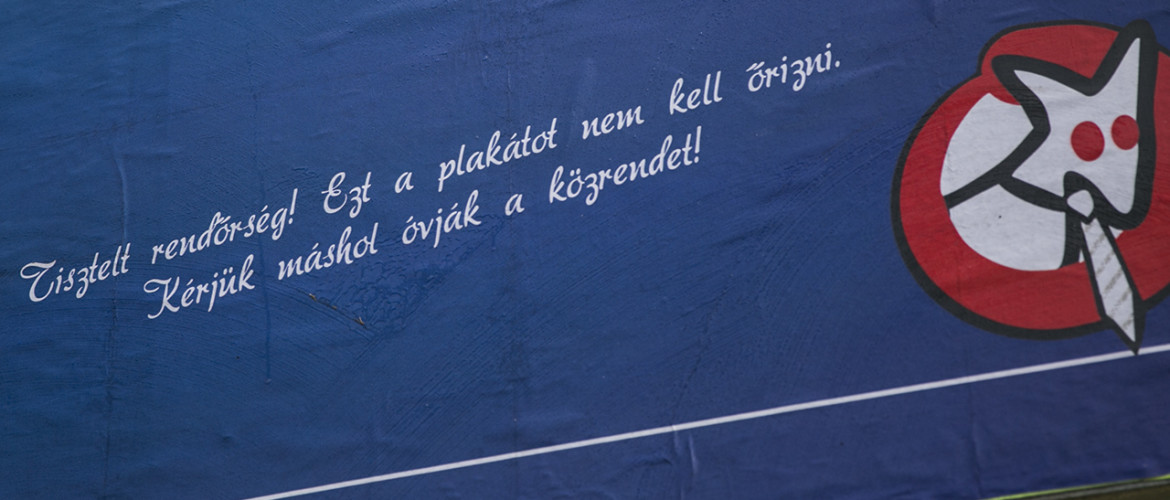 Tisztelt rendőrség! Ezt a plakátot nem kell őrizni.
Kérjük máshol óvják a közrendet!